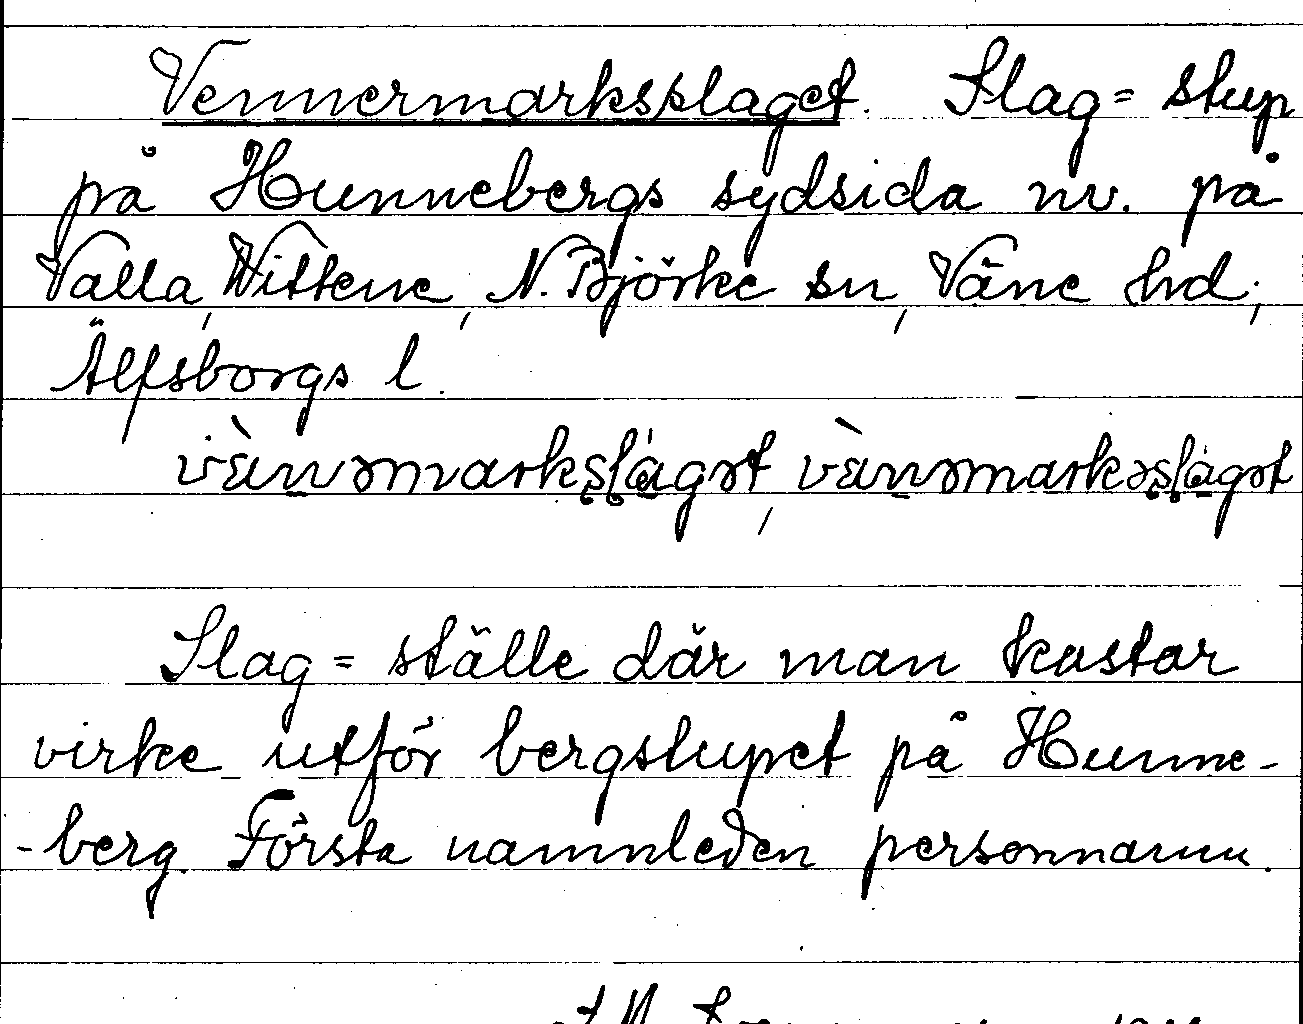 Vennermarksslaget. Slag = stup
på Hunnebergs sydsida nv. på
Valla, Wittene, N. Björke sn, Väne hd,
Älfsborgs l.
vànərmarkslàgət, vànərmarkəslàgət
Slag = ställe där man kastar
virke utför bergstupet på Hunne-
-berg. Första namnleden personnamn.